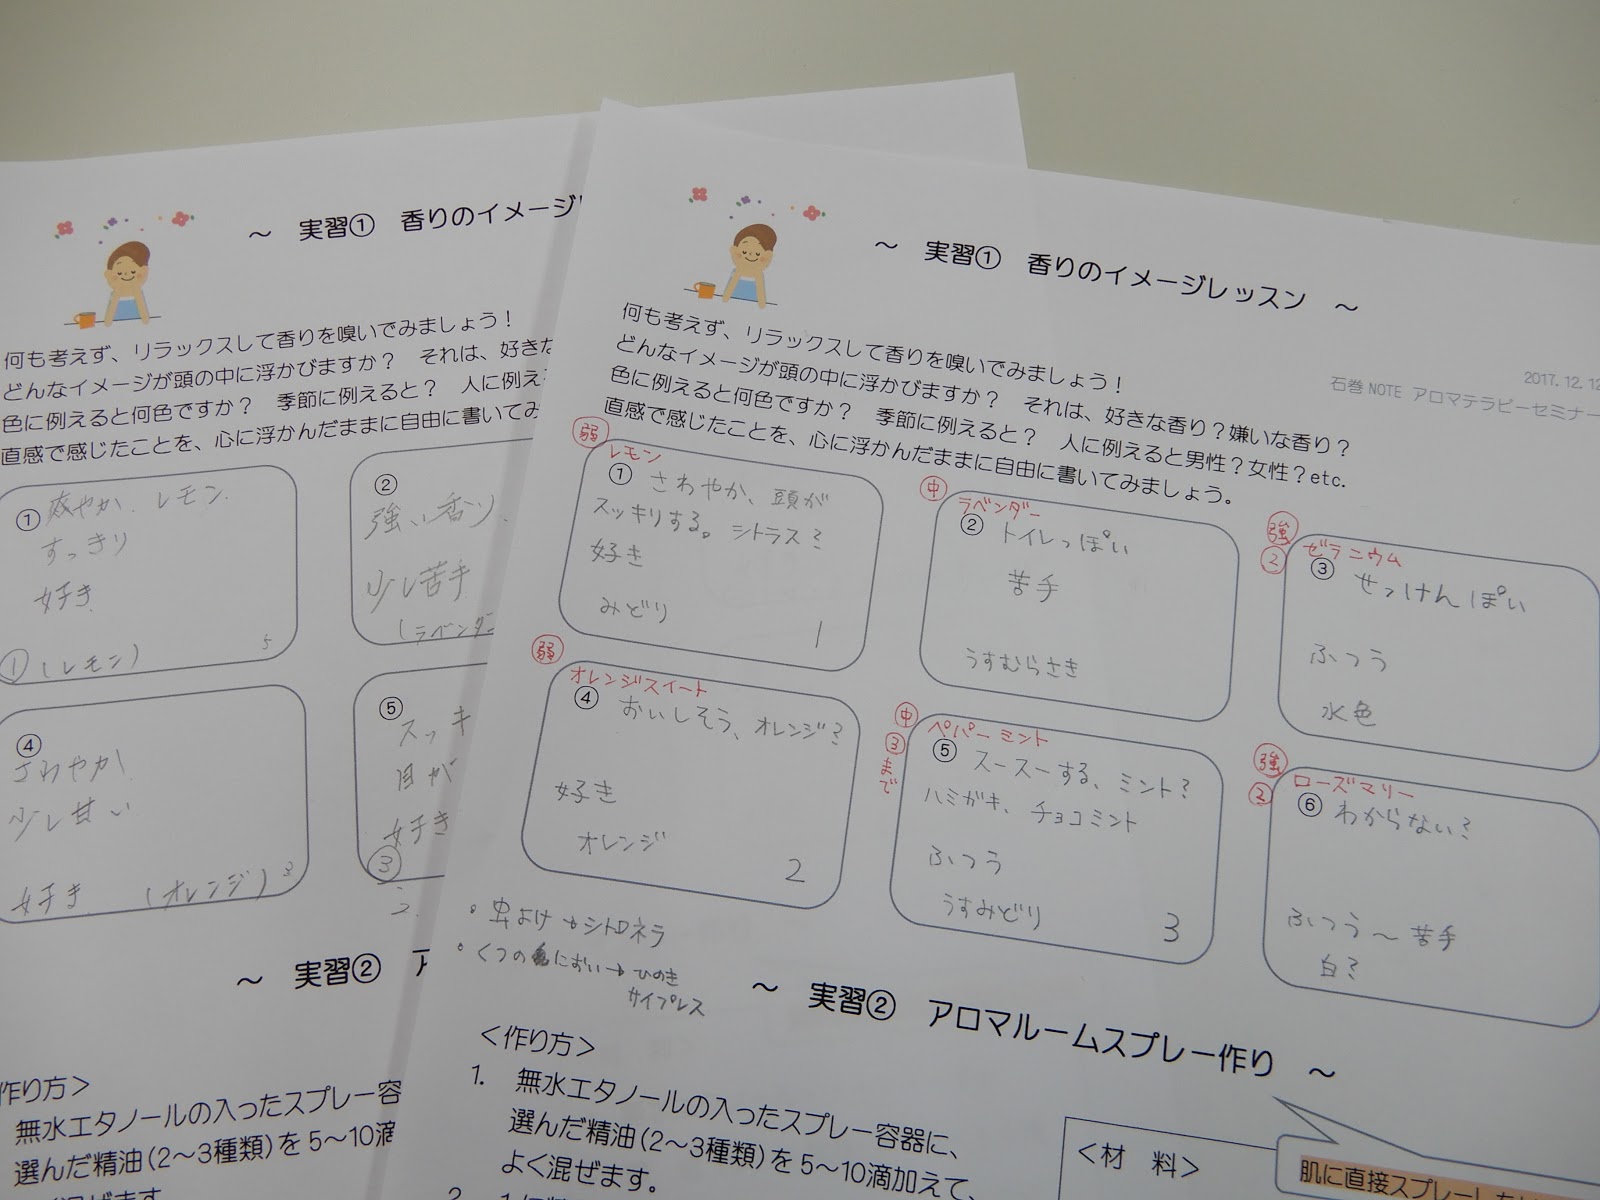 ～ 実習① 香りのイメージ
何も考えず、リラックスして香りを嗅いでみましょう！
どんなイメージが頭の中に浮かびますか？ それは、好きな
色に例えると何色ですか？ 季節に例えると？ 人に例え
直感で感じたことを、心に浮かんだままに自由に書いてみ
① 爽やか レモン
すっきり
好き
① (レモン)
5
②
強い香り
少し苦手
(ラベンダー
④
さわやか
少し甘い
好き (オレンジ)
3
⑤
スッキ
目が
好き
③
2.
～ 実習② ア
作り方＞
無水エタノールの入ったスプレー容
選んだ精油(2～3種類)を5～10滴
～ 実習① 香りのイメージレッスン ～
2017.12.12
石巻NOTE アロマテラピーセミナー
何も考えず、リラックスして香りを嗅いでみましょう！
どんなイメージが頭の中に浮かびますか？ それは、好きな香り？嫌いな香り？
色に例えると何色ですか？ 季節に例えると？ 人に例えると男性？女性？etc.
直感で感じたことを、心に浮かんだままに自由に書いてみましょう。
弱
レモン
① さわやか、頭が
スッキリする。シトラス？
好き
みどり
1
中
ラベンダー
② トイレっぽい
苦手
うすむらさき
強
②
ゼラニウム
③ せっけんぽい
ふつう
水色
弱
オレンジスイート
④ おいしそう、オレンジ？
好き
オレンジ
2
中
③まで
ペパーミント
⑤ スースーする、ミント？
ハミガキ、チョコミント
ふつう
うすみどり
3
強
②
ローズマリー
⑥ わからない？
ふつう～苦手
白？
・虫よけ→シトロネラ
・くつのにおい→ひのき
サイプレス
～ 実習② アロマルームスプレー作り ～
＜作り方＞
1. 無水エタノールの入ったスプレー容器に、
選んだ精油(2～3種類)を5～10滴加えて、
よく混ぜます。
＜材 料＞
肌に直接スプレーした